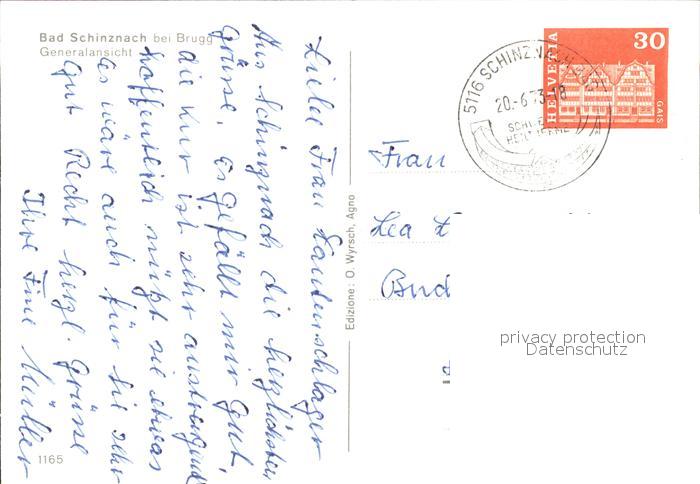 Bad Schinznach bei Brugg
Generalansicht
Liebe Frau Lautenschlager
Aus Schinznach die herzlichsten
Grüsse, es gefällt mir gut,
die Kur ist sehr anstrengend
hoffentlich nützt sie etwas
es wäre auch für Sie sehr
gut Recht herzl. Grüsse
Ihre Fine Müller
1165
Edizione: O. Wyrsch, Agno
5116 SCHINZNACH-BAD
20.-6.73-18
HELVETIA
30
GAIS
Frau
Lea
privacy protection
Datenschutz